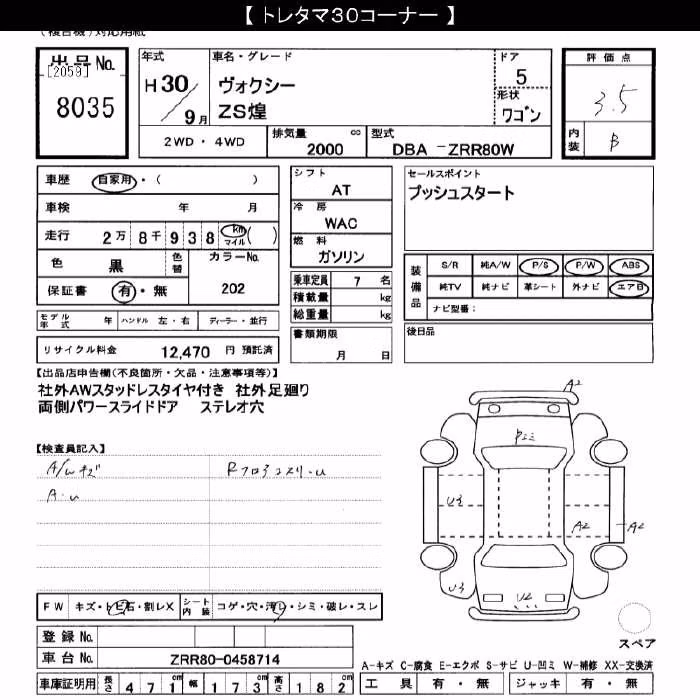 【 トレタマ30コーナー 】
(複合機)対応用紙
出品No.
[2059]
8035
年式
H 30 / 9月
車名・グレード
ヴォクシー
ZS煌
ドア
5
形状
ワゴン
評価点
3.5
内装
B
2WD ・ 4WD
排気量 cc
2000
型式
DBA -ZRR80W
車歴 自家用・( )
車検 年 月
走行 2万 8千 9 3 8 km マイル ( )
色 黒 色替
カラーNo.
202
保証書 有・無
モデル年式 年 ハンドル 左・右 ディーラー・並行
リサイクル料金 12,470 円 預託済
シフト
AT
冷房
WAC
燃料
ガソリン
乗車定員 7 名
積載量 kg
総重量 kg
書類期限
月 日
セールスポイント
プッシュスタート
装備品
S/R 純A/W P/S P/W ABS
純TV 純ナビ 革シート 外ナビ エアB
ナビ型番:
後日品
【出品店申告欄(不良箇所・欠品・注意事項等)】
社外AWスタッドレスタイヤ付き 社外足廻り
両側パワースライドドア ステレオ穴
【検査員記入】
A/Wキズ
A・U
A2
U3
A2
A2
U3
U2
FW キズ・トビ石・割レX
シート内装 コゲ・穴・汚レ・シミ・破レ・スレ
登録No.
車台No. ZRR80-0458714
スペア
A-キズ C-腐食 E-エクボ S-サビ U-凹ミ W-補修 XX-交換済
車庫証明用 長さ 4 7 1cm 幅 1 7 3cm 高さ 1 8 2cm
工具 有・無 ジャッキ 有・無